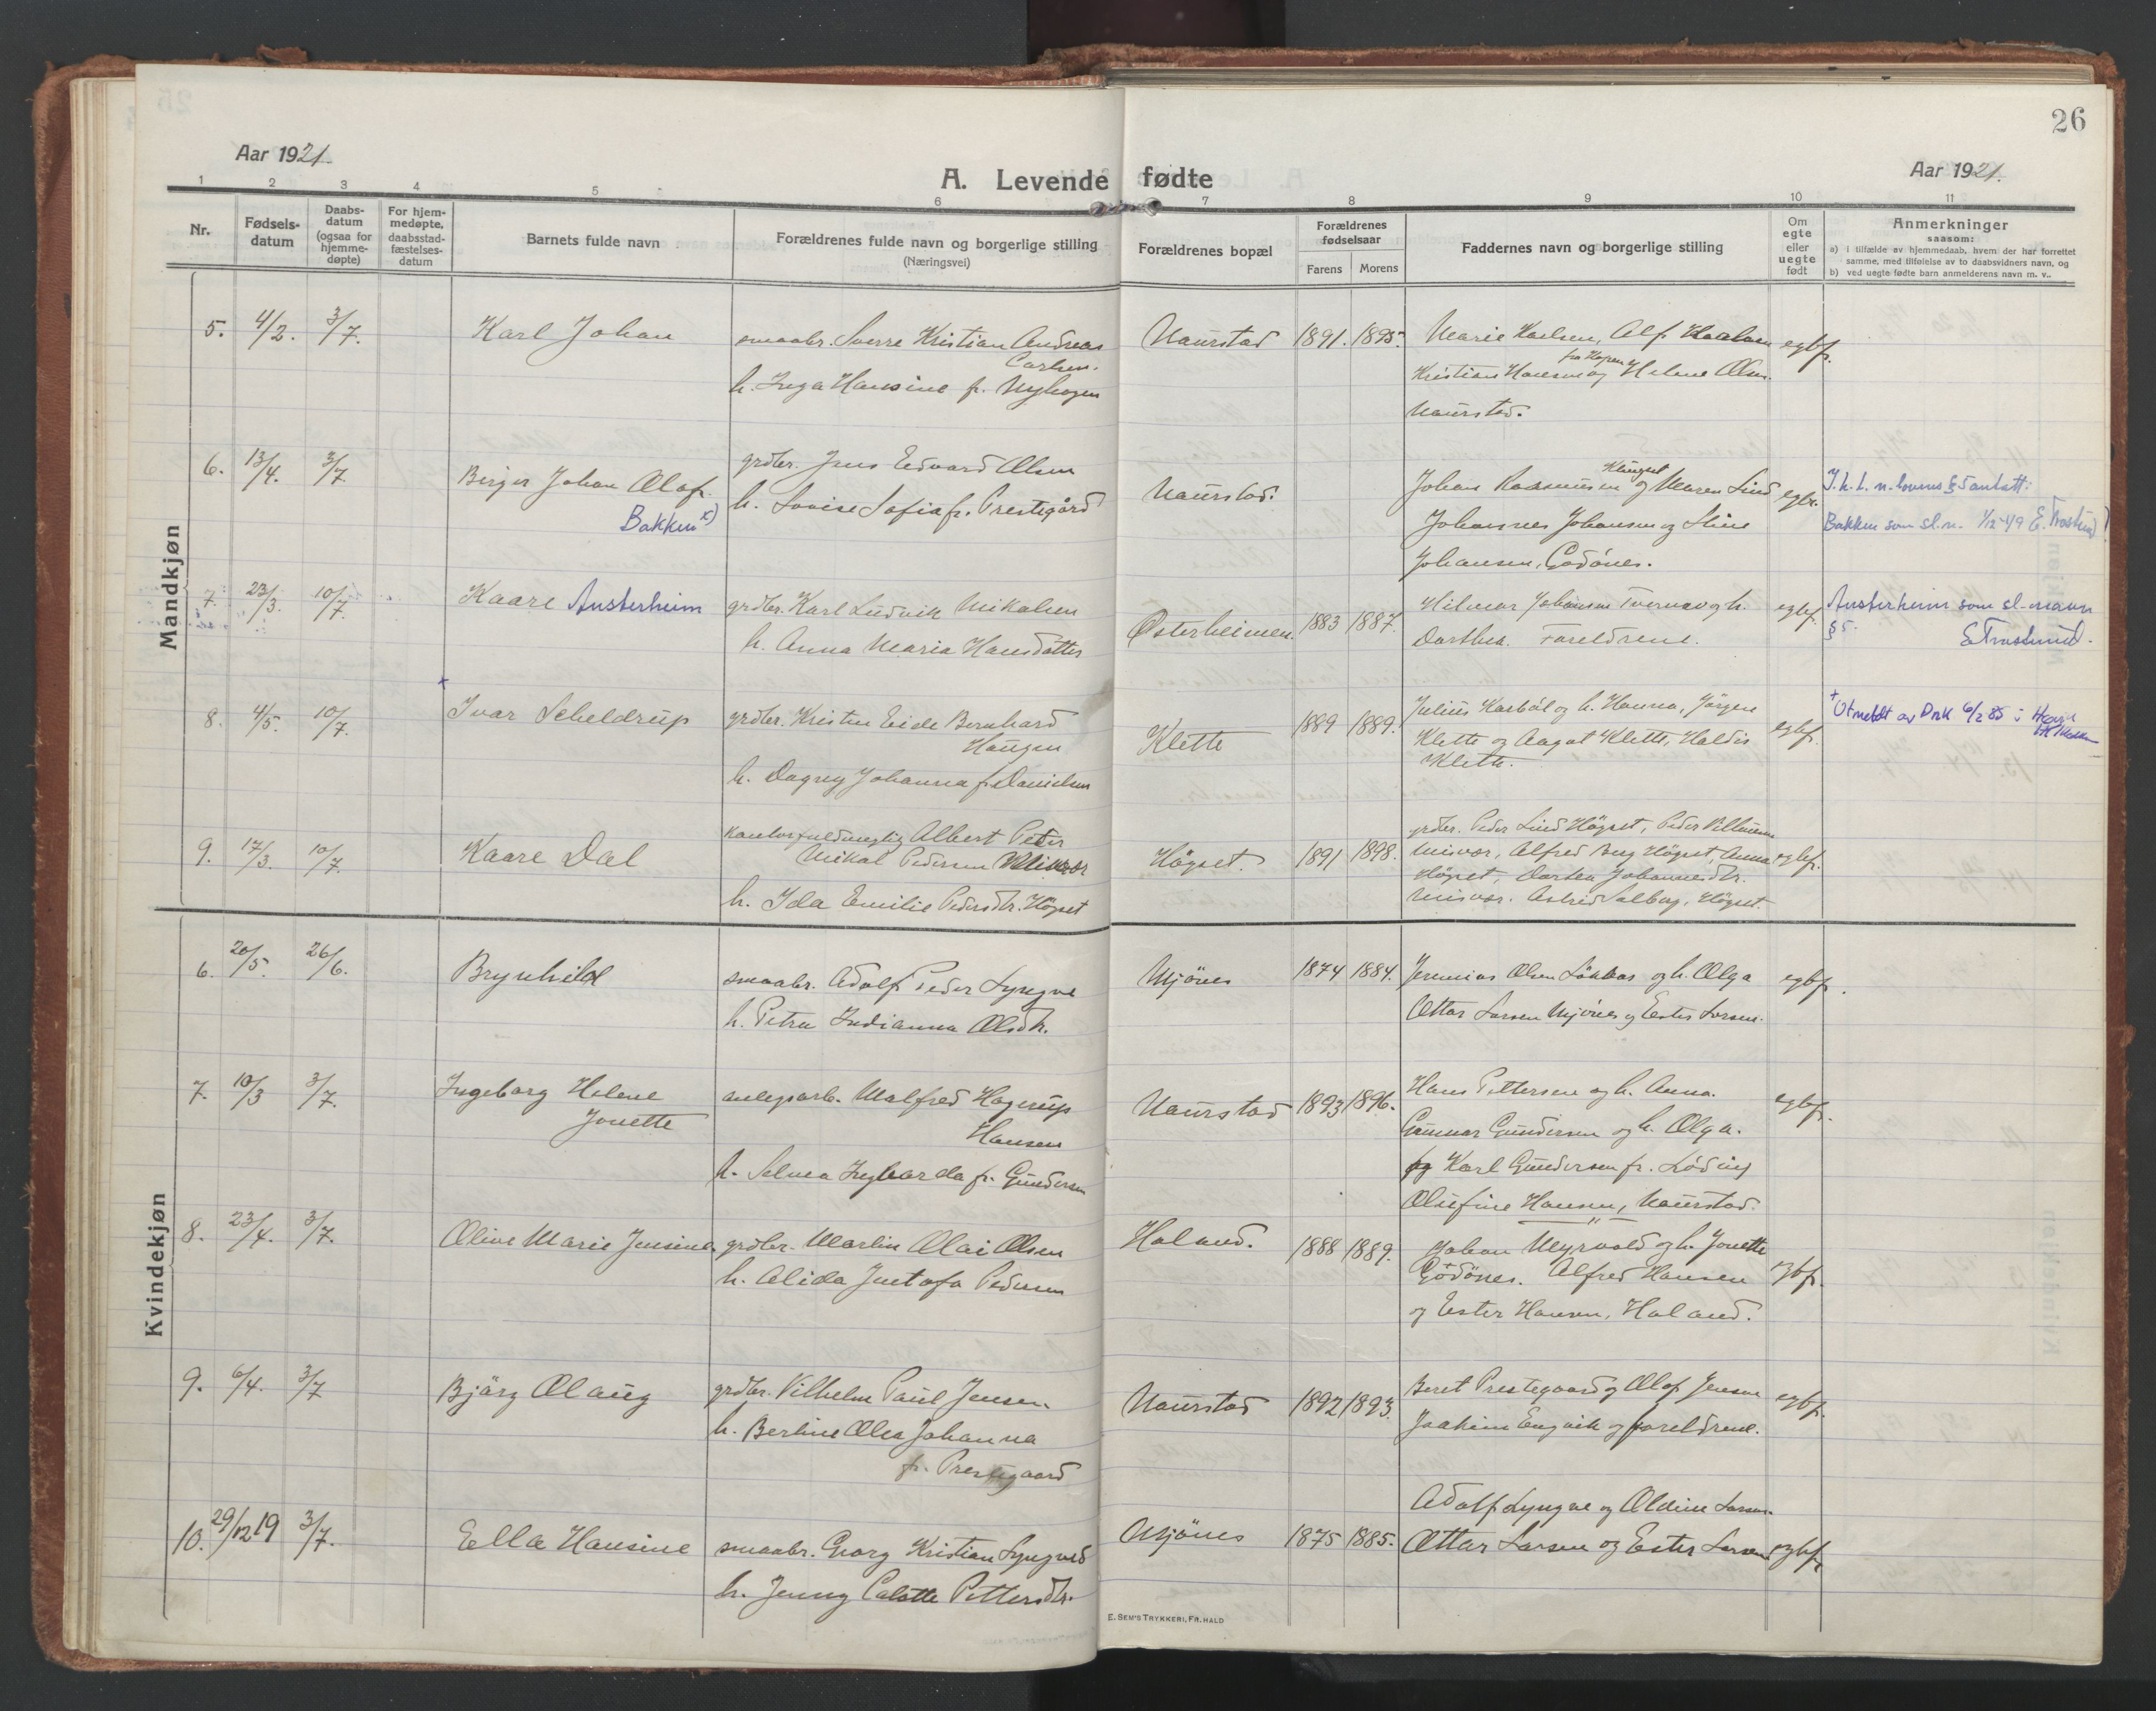 26
Aar 1921.
Aar 1921.
A. Levende fødte
1 2 3 4 5 6 7 8 9 10 11
Nr.
Fødsels-
datum
Daabs-
datum
(ogsaa for
hjemme-
døpte)
For hjem-
medøpte,
daabsstad-
fæstelses-
datum
Barnets fulde navn
Forældrenes fulde navn og borgerlige stilling
(Næringsvei)
Forældrenes bopæl
Forældrenes
fødselsaar
Farens Morens
Faddernes navn og borgerlige stilling
Om
egte
eller
uegte
født
Anmerkninger
saasom:
a) i tilfælde av hjemmedaab, hvem der har forrettet
samme, med tilføielse av to daabsvidners navn, og
b) ved uegte fødte barn anmelderens navn m. v..
Mandkjøn
5. 4/2. 3/7. Karl Johan
smaabr. Sverre Kristian Andreas
Carlsen.
h. Inga Hansine f. Myhagen
Naurstad 1891. 1895.
Marie Karlsen, Alf
Kristian Hansen og Helene Olsen
Naurstad.
egbf.
6. 13/4. 3/7. Birger Johan Olaf.
Bakken x)
grdbr. Jens Edvard Olsen
h. Lovise Sofia f. Prestegård
Naurstad.
Klungset
Johan Rasmussen og Maren Lind
Johannes Johansen og Stine
Johansen, Godönes.
egbf.
I. h. t. n. lovens § 5 antatt:
Bakken som sl.n. 1/12-49 E. Trostrud
7. 23/3. 10/7. Kaare Austerheim
grdbr. Karl Ludvik Mikalsen
h. Anna Maria Hansdatter
Østerheimen 1883 1887.
Hilmar Johansen Tvernav og h.
Dorthea. Foreldrene.
egbf.
Austerheim som sl-navn
§ 5. E Trostrud.
8. 4/5. 10/7. x Ivar Scheldrup
grdbr. Kristen Eide Bernhard
Haugen
h. Dagny Johanna f. Danielsen
Klette 1889 1889.
Julius Karbøl og h. Hanna, Jörgen
Klette og Aagot Klette, Haldis
Klette.
egbf.
+ Utmeldt av Dnk 6/2 85
9. 17/3. 10/7. Kaare Dal
kontorfuldmegtig Albert Peter
Mikal Pedersen Misvær
h. Ida Emilie Pedersdtr. Högset
Högset. 1891 1898.
grdbr. Peder Lind Högset, Peder Villumsen
Misvær, Alfred Berg Högset, Anna
Högset, Dorthea Johannesdtr.
Misvær. Astrid Solberg, Högset.
egbf.
Kvindekjøn
6. 20/5. 26/6. Brynhild
smaabr. Adolf Peder Lyngve
h. Petra Indianna Olsdtr.
Mjönes 1874 1884.
Jeremias Olsen Løkkas og h. Olga
Ottar Larsen Mjönes og Ester Larsen.
egbf.
7. 10/3 3/7. Ingeborg Helene
Jonette
anlegsarb. Malfred Hagerup
Hansen
h. Selma Ingvarda f. Gundersen
Naurstad 1893 1896.
Hans Pettersen og h. Anna.
Gunnar Gundersen og h. Olga.
og Karl Gundersen fr. Löding
Olufine Hansen, Naurstad.
egbf.
8. 23/4. 3/7. Oline Marie Jensine
grdbr. Martin Olai Olsen
h. Alida Justafa Pedersen
Haland. 1888 1889.
Johan Myrvold og h. Jonette
Godönes. Alfred Hansen
og Ester Hansen, Haland.
egbf.
9. 6/4. 3/7 Bjärg Olaug
grdbr. Vilhelm Paul Jensen
h. Berthine Olea Johanna
f. Prestegaard
Naurstad 1892 1893.
Beret Prestegaard og Olaf Jensen
Joakim Engvik og foreldrene.
egbf.
10. 29/12 19 3/7. Ella Hansine
smaabr. Georg Kristian Lyngved
h. Jenny Calotte Pettersdtr.
Mjönes 1875 1885.
Adolf Lyngve og Oldine Larsen
Ottar Larsen og Ester Larsen
egbf.
E. SEM'S TRYKKERI, FR. HALD